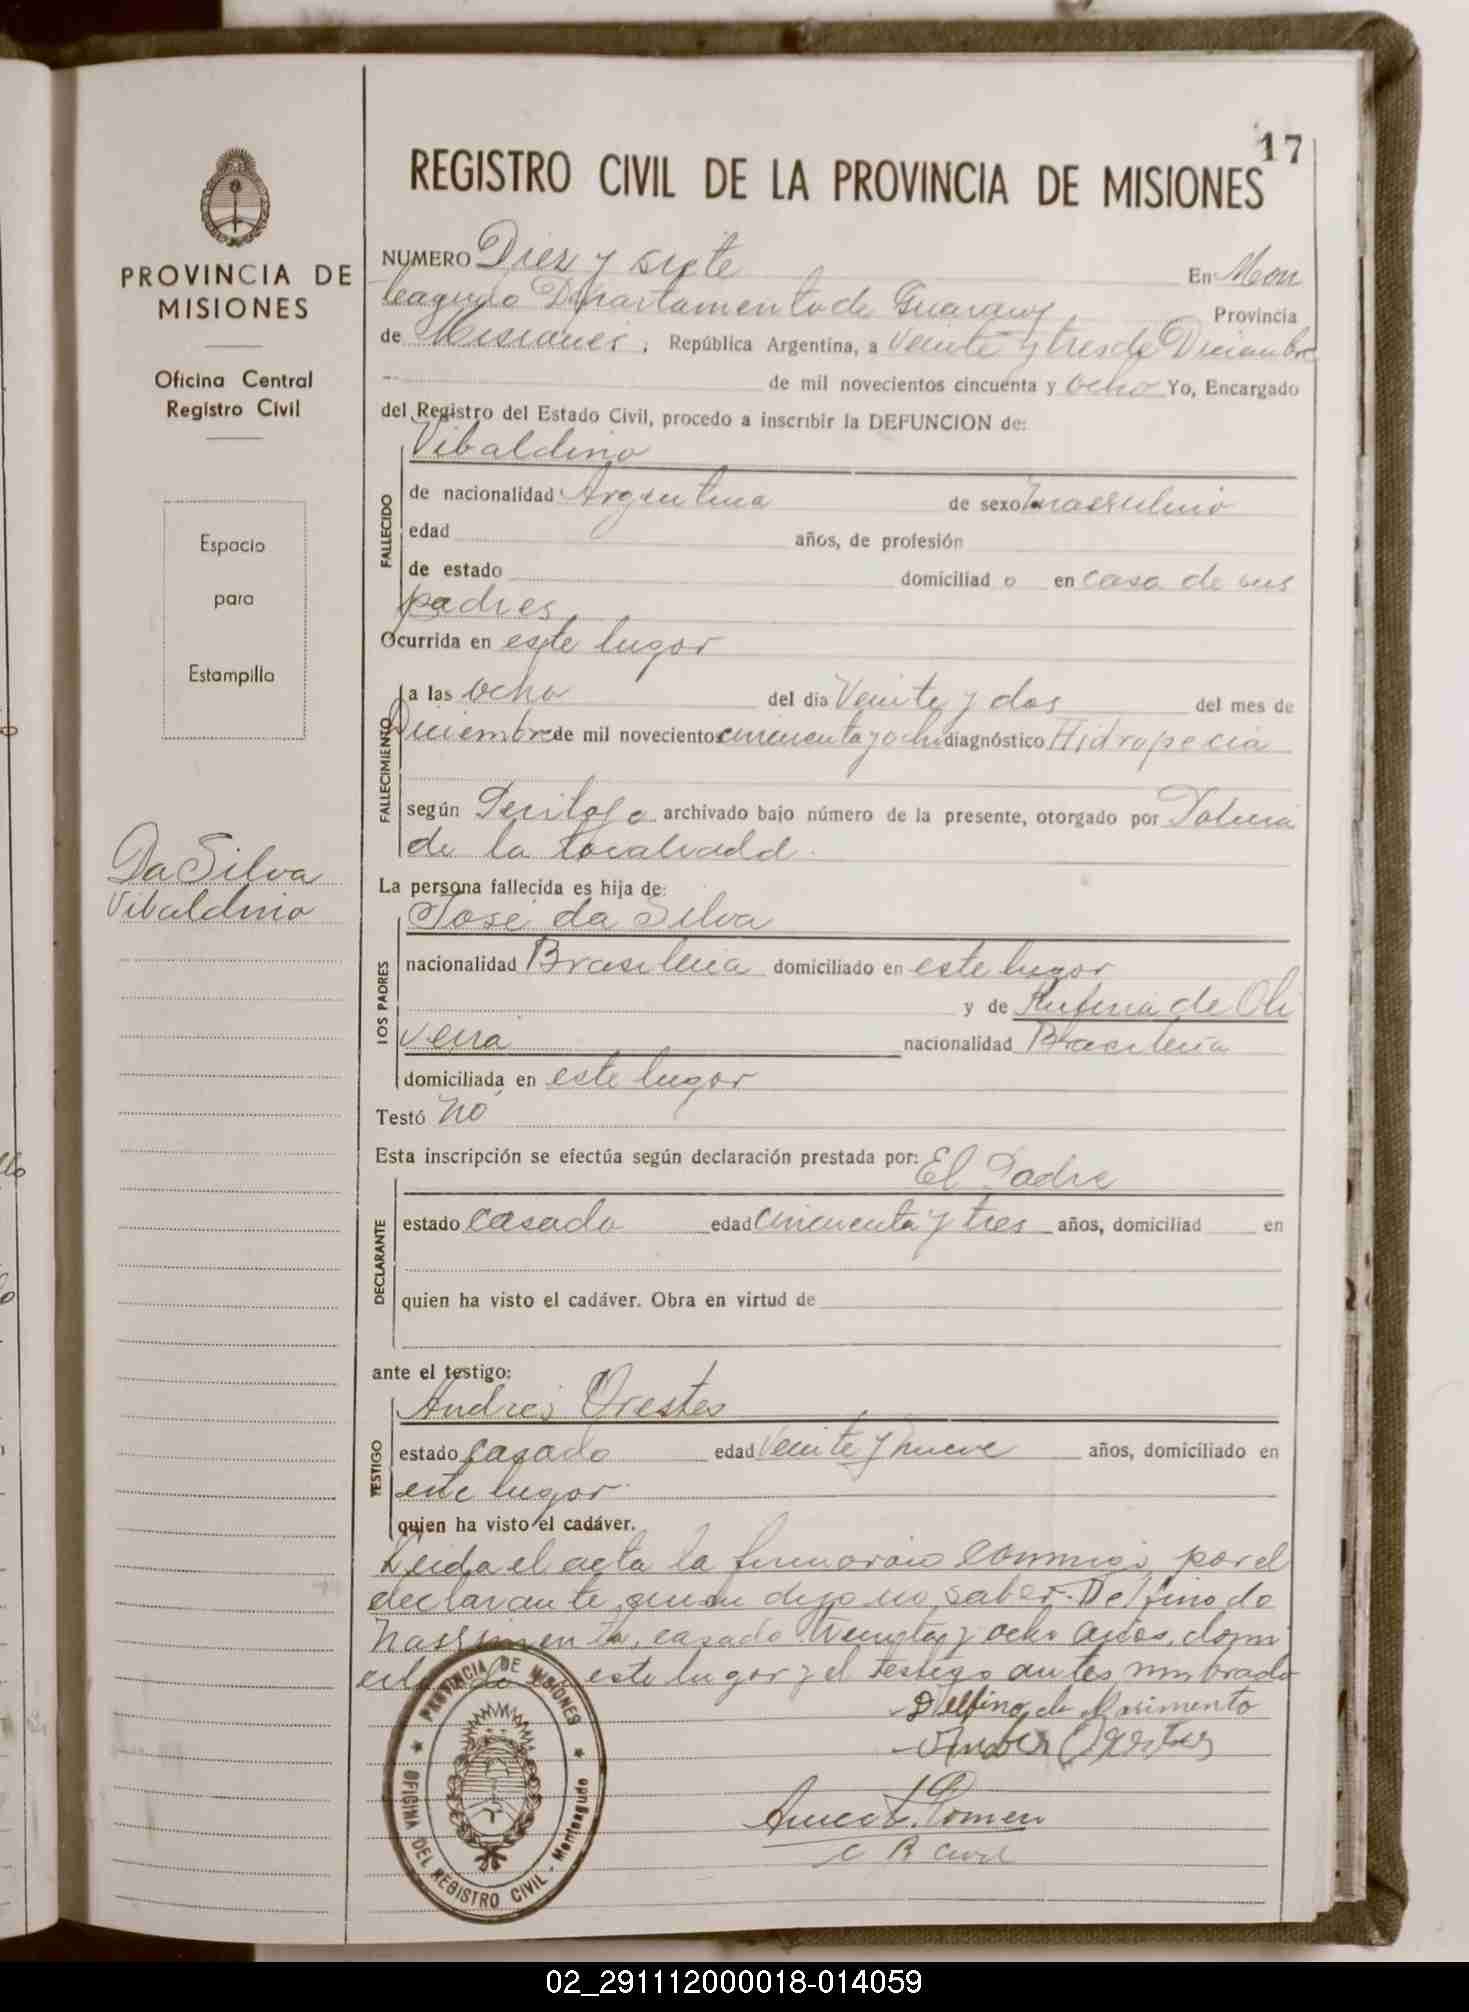 17
REGISTRO CIVIL DE LA PROVINCIA DE MISIONES
PROVINCIA DE
MISIONES
Oficina Central
Registro Civil
Espacio
para
Estampilla
Da Silva
Vibaldino
NUMERO Diez y siete En Mon
teagudo Departamento de Guarany Provincia
de Misiones, República Argentina, a Veinte y tres de Diciembre
de mil novecientos cincuenta y ocho Yo, Encargado
del Registro del Estado Civil, procedo a inscribir la DEFUNCION de:
Vibaldino
FALLECIDO
de nacionalidad Argentina de sexo masculino
edad años, de profesión
de estado domiciliado en casa de sus
padres
Ocurrida en este lugar
FALLECIMIENTO
a las ocho del día Veinte y dos del mes de
Diciembre de mil novecientos cincuenta y ocho diagnóstico Hidropecia
según archivado bajo número de la presente, otorgado por Policia
de la localidadd.
La persona fallecida es hija de:
José da Silva
LOS PADRES
nacionalidad Brasileria domiciliado en este lugar
y de Rufina de Oli
veira nacionalidad Brasileria
domiciliada en este lugar
Testó no
Esta inscripción se efectúa según declaración prestada por: El Padre
DECLARANTE
estado casado edad cincuenta y tres años, domiciliad en
quien ha visto el cadáver. Obra en virtud de
ante el testigo:
Andres Orestes
TESTIGO
estado casado edad Veinte y nueve años, domiciliado en
este lugar
quien ha visto el cadáver.
Leida el acta la conmigo, por el
declarante quien dijo no saber. Delfino do
Nassimento, casado y ocho años, domi
este lugar y el testigo antes nombrado
Delfino do Nasimento
C R Civil
PROVINCIA DE MISIONES
OFICINA DEL REGISTRO CIVIL - Monteagudo
02_291112000018-014059